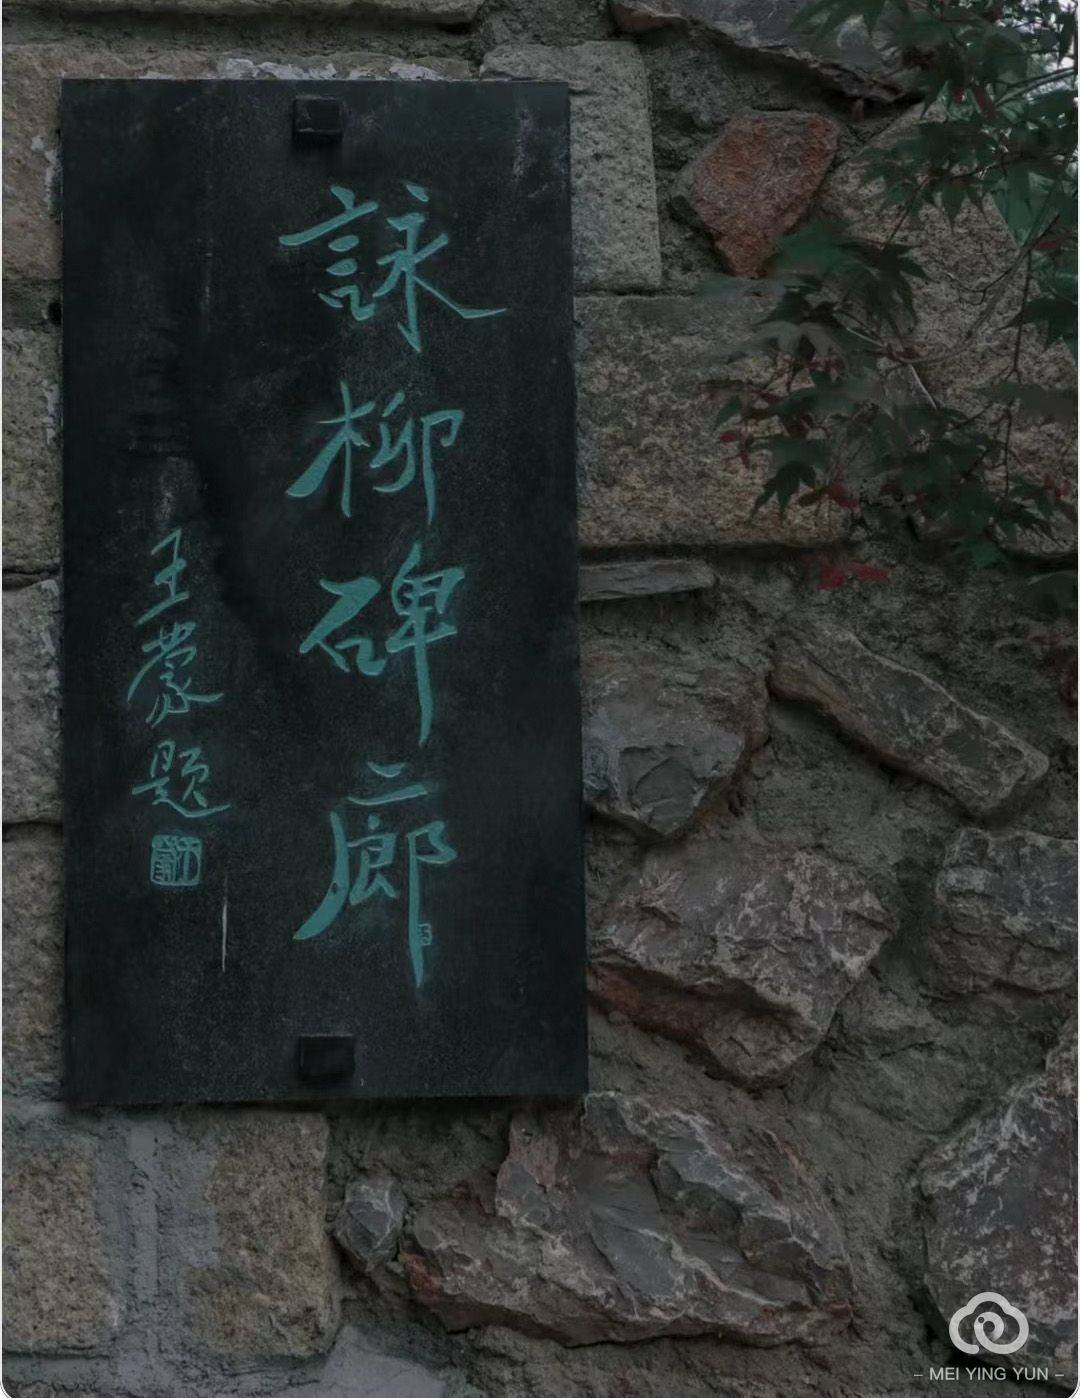 詠柳碑廊
王蒙题
– MEI YING YUN –